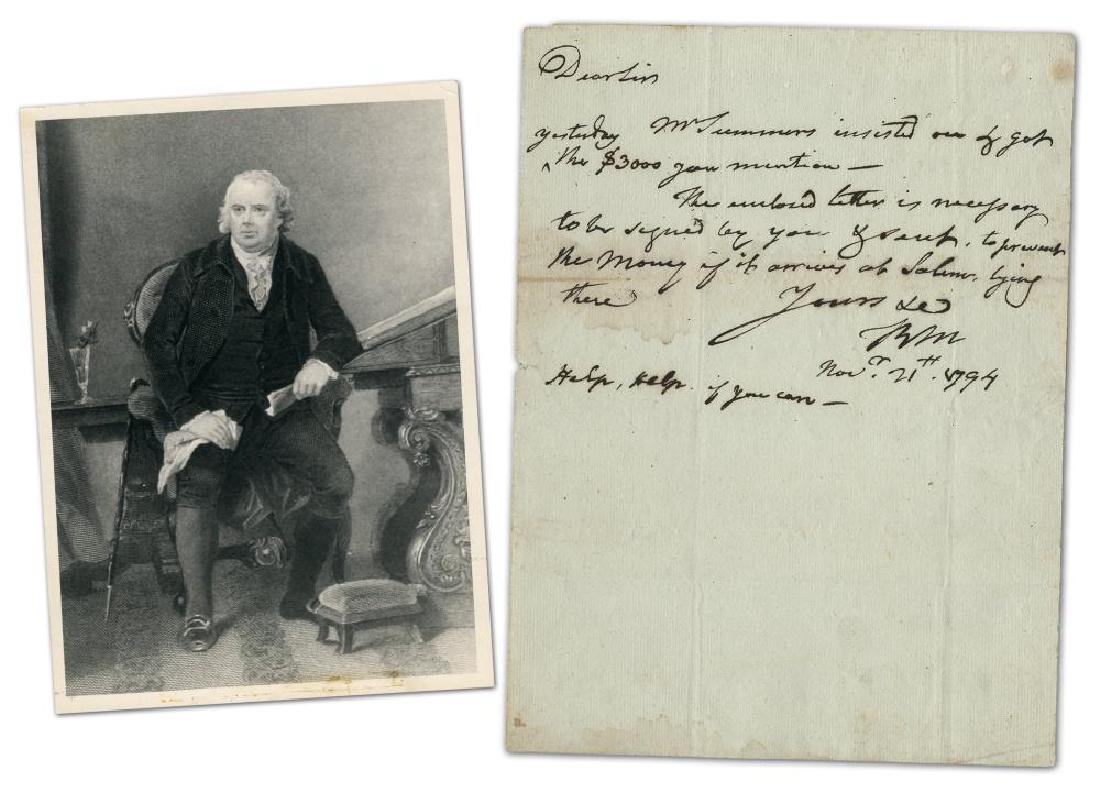 Dear Sir
yesterday Mr Summers insisted on & got
^ the $3000 you mention —
The enclosed letter is necessary
to be signed by you & sent, to prevent
the Money if it arrives at Salem, lying
there Yours &c
RM
Novr. 21st. 1794
Help, Help if you can —